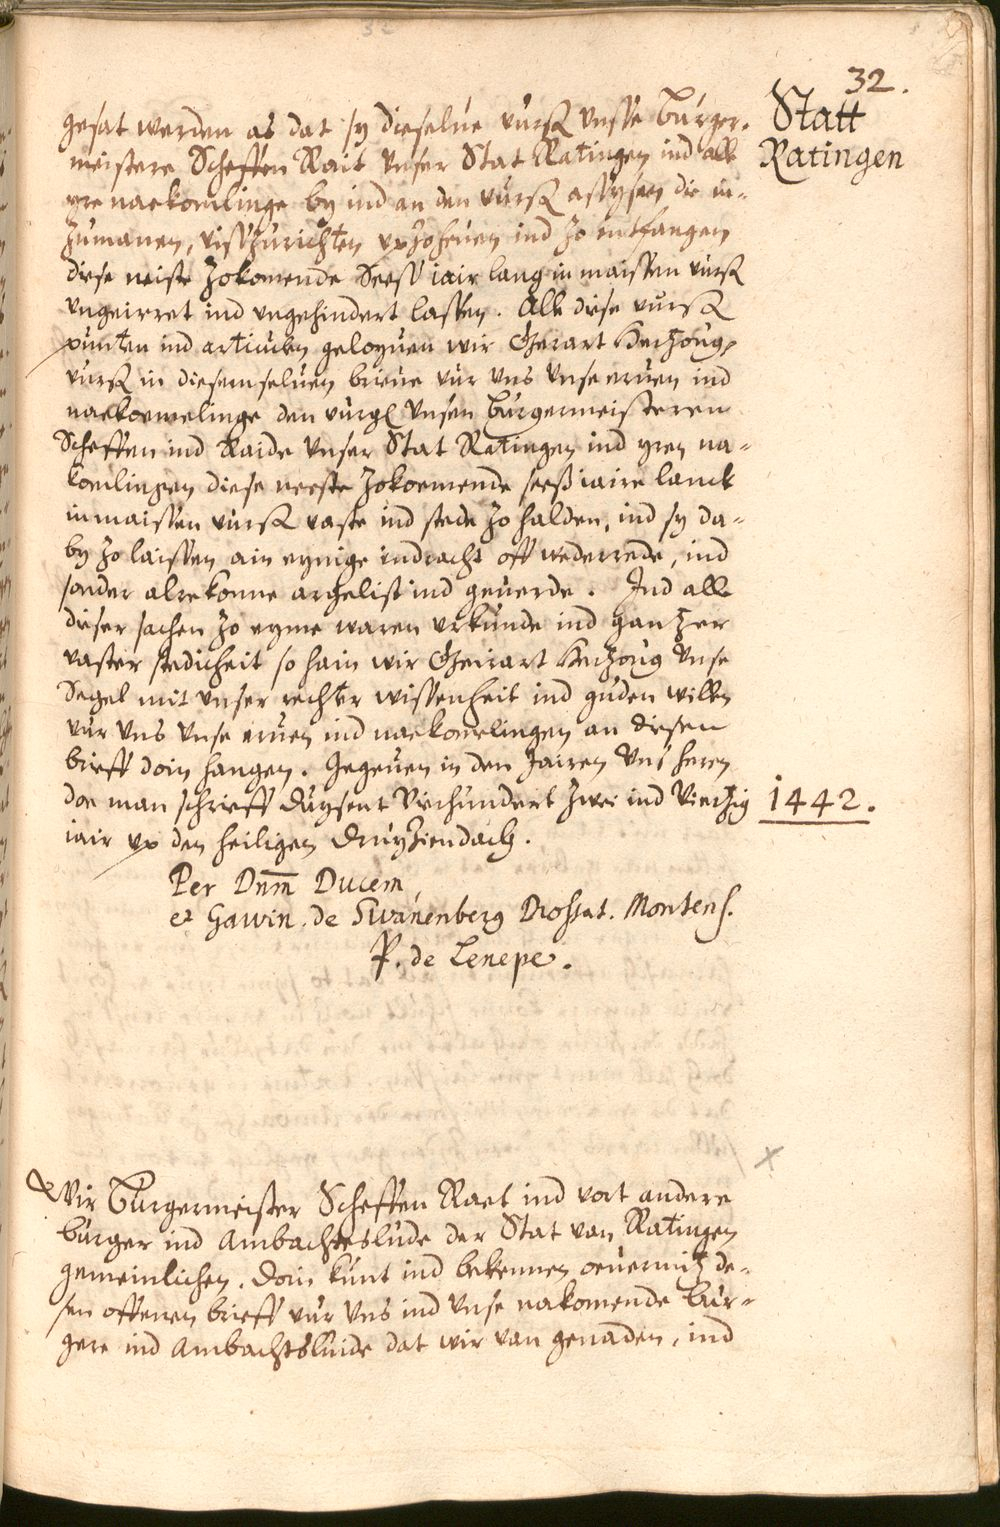 32.
Statt
Ratingen
gesat werden as dat sy dieselue vursß vnsse Burger-
meistere Scheffen Rait vnser Stat Ratingen ind alle
yre naekomlinge by ind an den vursß assysen, die in-
zumanen, visszurichten vpzoheuen ind zo entfangen
diese neiste zokomende Seess iair lang in maissen vursß
vngeirret ind vngehindert lassen. Alle diese vursß
puncten ind articulen geloyuen wir Gerart Hertzoug
vursß in diesem seluen brieue vur vns vnse eruen ind
naekoemelinge den vurgl vnsen Burgermeisteren
Scheffen ind Raide vnser Stat Ratingen ind yren na-
komlingen diese neeste zokoemende seess iaire lanck
in maissen vursß vaste ind stede zo halden, ind sy da-
by zo laissen ain eynige indracht off wederrede, ind
sonder alrekonne argelist ind geuerde. Ind alle
dieser sachen zo eyme waren vrkunde ind gantzer
vaster stedicheit so hain wir Gerart Hertzoug vnse
Segel mit vnser rechter wissenheit ind guden willen
vur vns vnse eruen ind naekomelingen an diesen
brieff doin hangen. Gegeuen in den Jairen vns heren
doe man schrieff duysent Vierhundert zwei ind Viertzig
1442.
iair vp den heiligen Druyziendach.
Per Dnm Ducem,
et Gawin. de Swanenberg Drossat. Montens.
P. de Lenepe.
Wir Burgermeister Scheffen Raet ind vort andere
burger ind Ambachteslude der Stat van Ratingen
gemeinlichen. Doin kunt ind bekennen ouermitz de-
sen offenen brieff vur vns ind vnse nakomende bur-
gere ind Ambachtsluide dat wir van genaden, ind